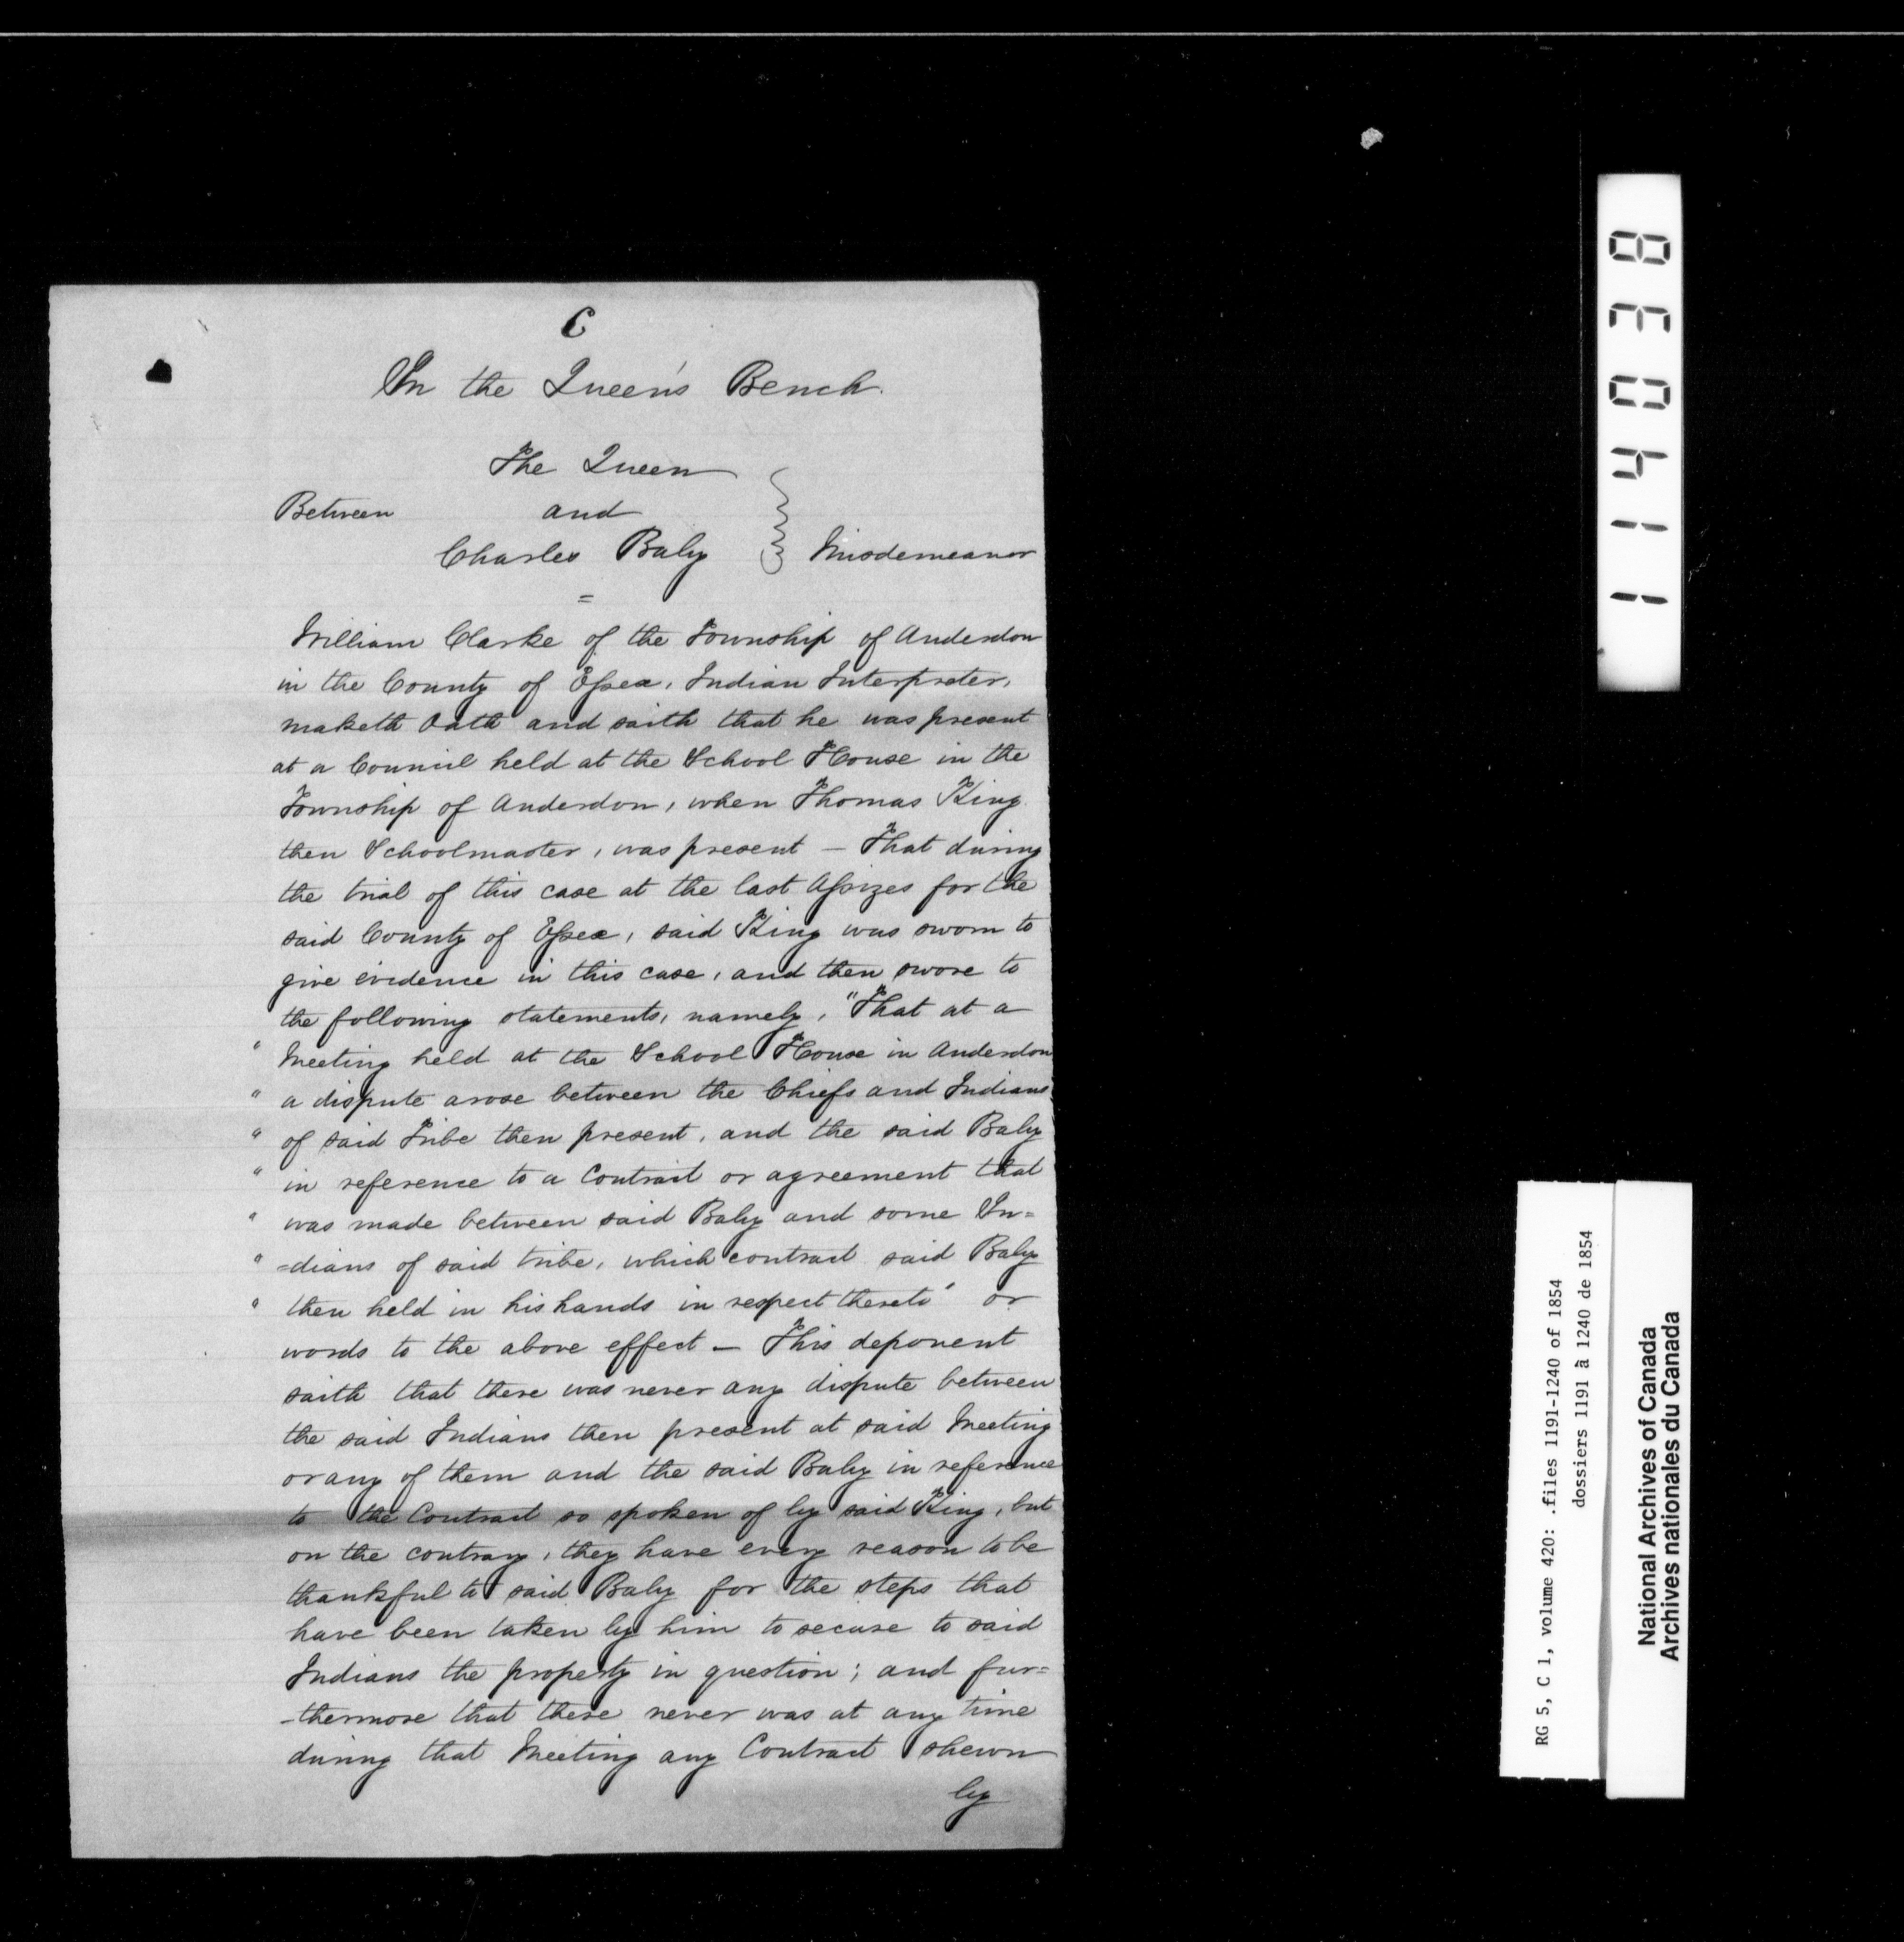 C
In the Queen's Bench.
The Queen
Between and
Charles Baby } Misdemeanor
=
William Clarke of the Township of Anderdon
in the County of Essex, Indian Interpreter,
maketh Oath and saith that he was present
at a Council held at the School House in the
Township of Anderdon, when Thomas King
then Schoolmaster, was present — That during
the trial of this case at the last Assizes for the
said County of Essex, said King was sworn to
give evidence in this case, and then swore to
the following statements, namely, "That at a
" Meeting held at the School House in Anderdon
" a dispute arose between the Chiefs and Indians
" of said Tribe then present, and the said Baby
" in reference to a Contract or agreement that
" was made between said Baby and some In=
" =dians of said tribe, which contract said Baby
" then held in his hands in respect thereto" or
words to the above effect — This deponent
saith that there was never any dispute between
the said Indians then present at said Meeting
or any of them and the said Baby in reference
to the Contract so spoken of by said King, but
on the contrary, they have every reason to be
thankful to said Baby for the steps that
have been taken by him to secure to said
Indians the property in question; and fur=
-thermore that there never was at any time
during that Meeting any Contract shewn
by
114038
RG 5, C 1, volume 420: .files 1191-1240 of 1854
dossiers 1191 à 1240 de 1854
National Archives of Canada
Archives nationales du Canada